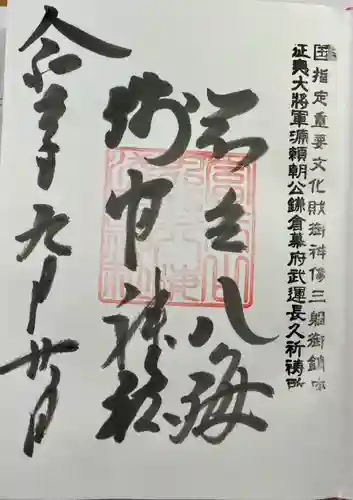 国指定重要文化財御神像三躯御鎮座
征夷大將軍源頼朝公鎌倉幕府武運長久祈祷所
八海
浅間神社
令和 年九月廿日